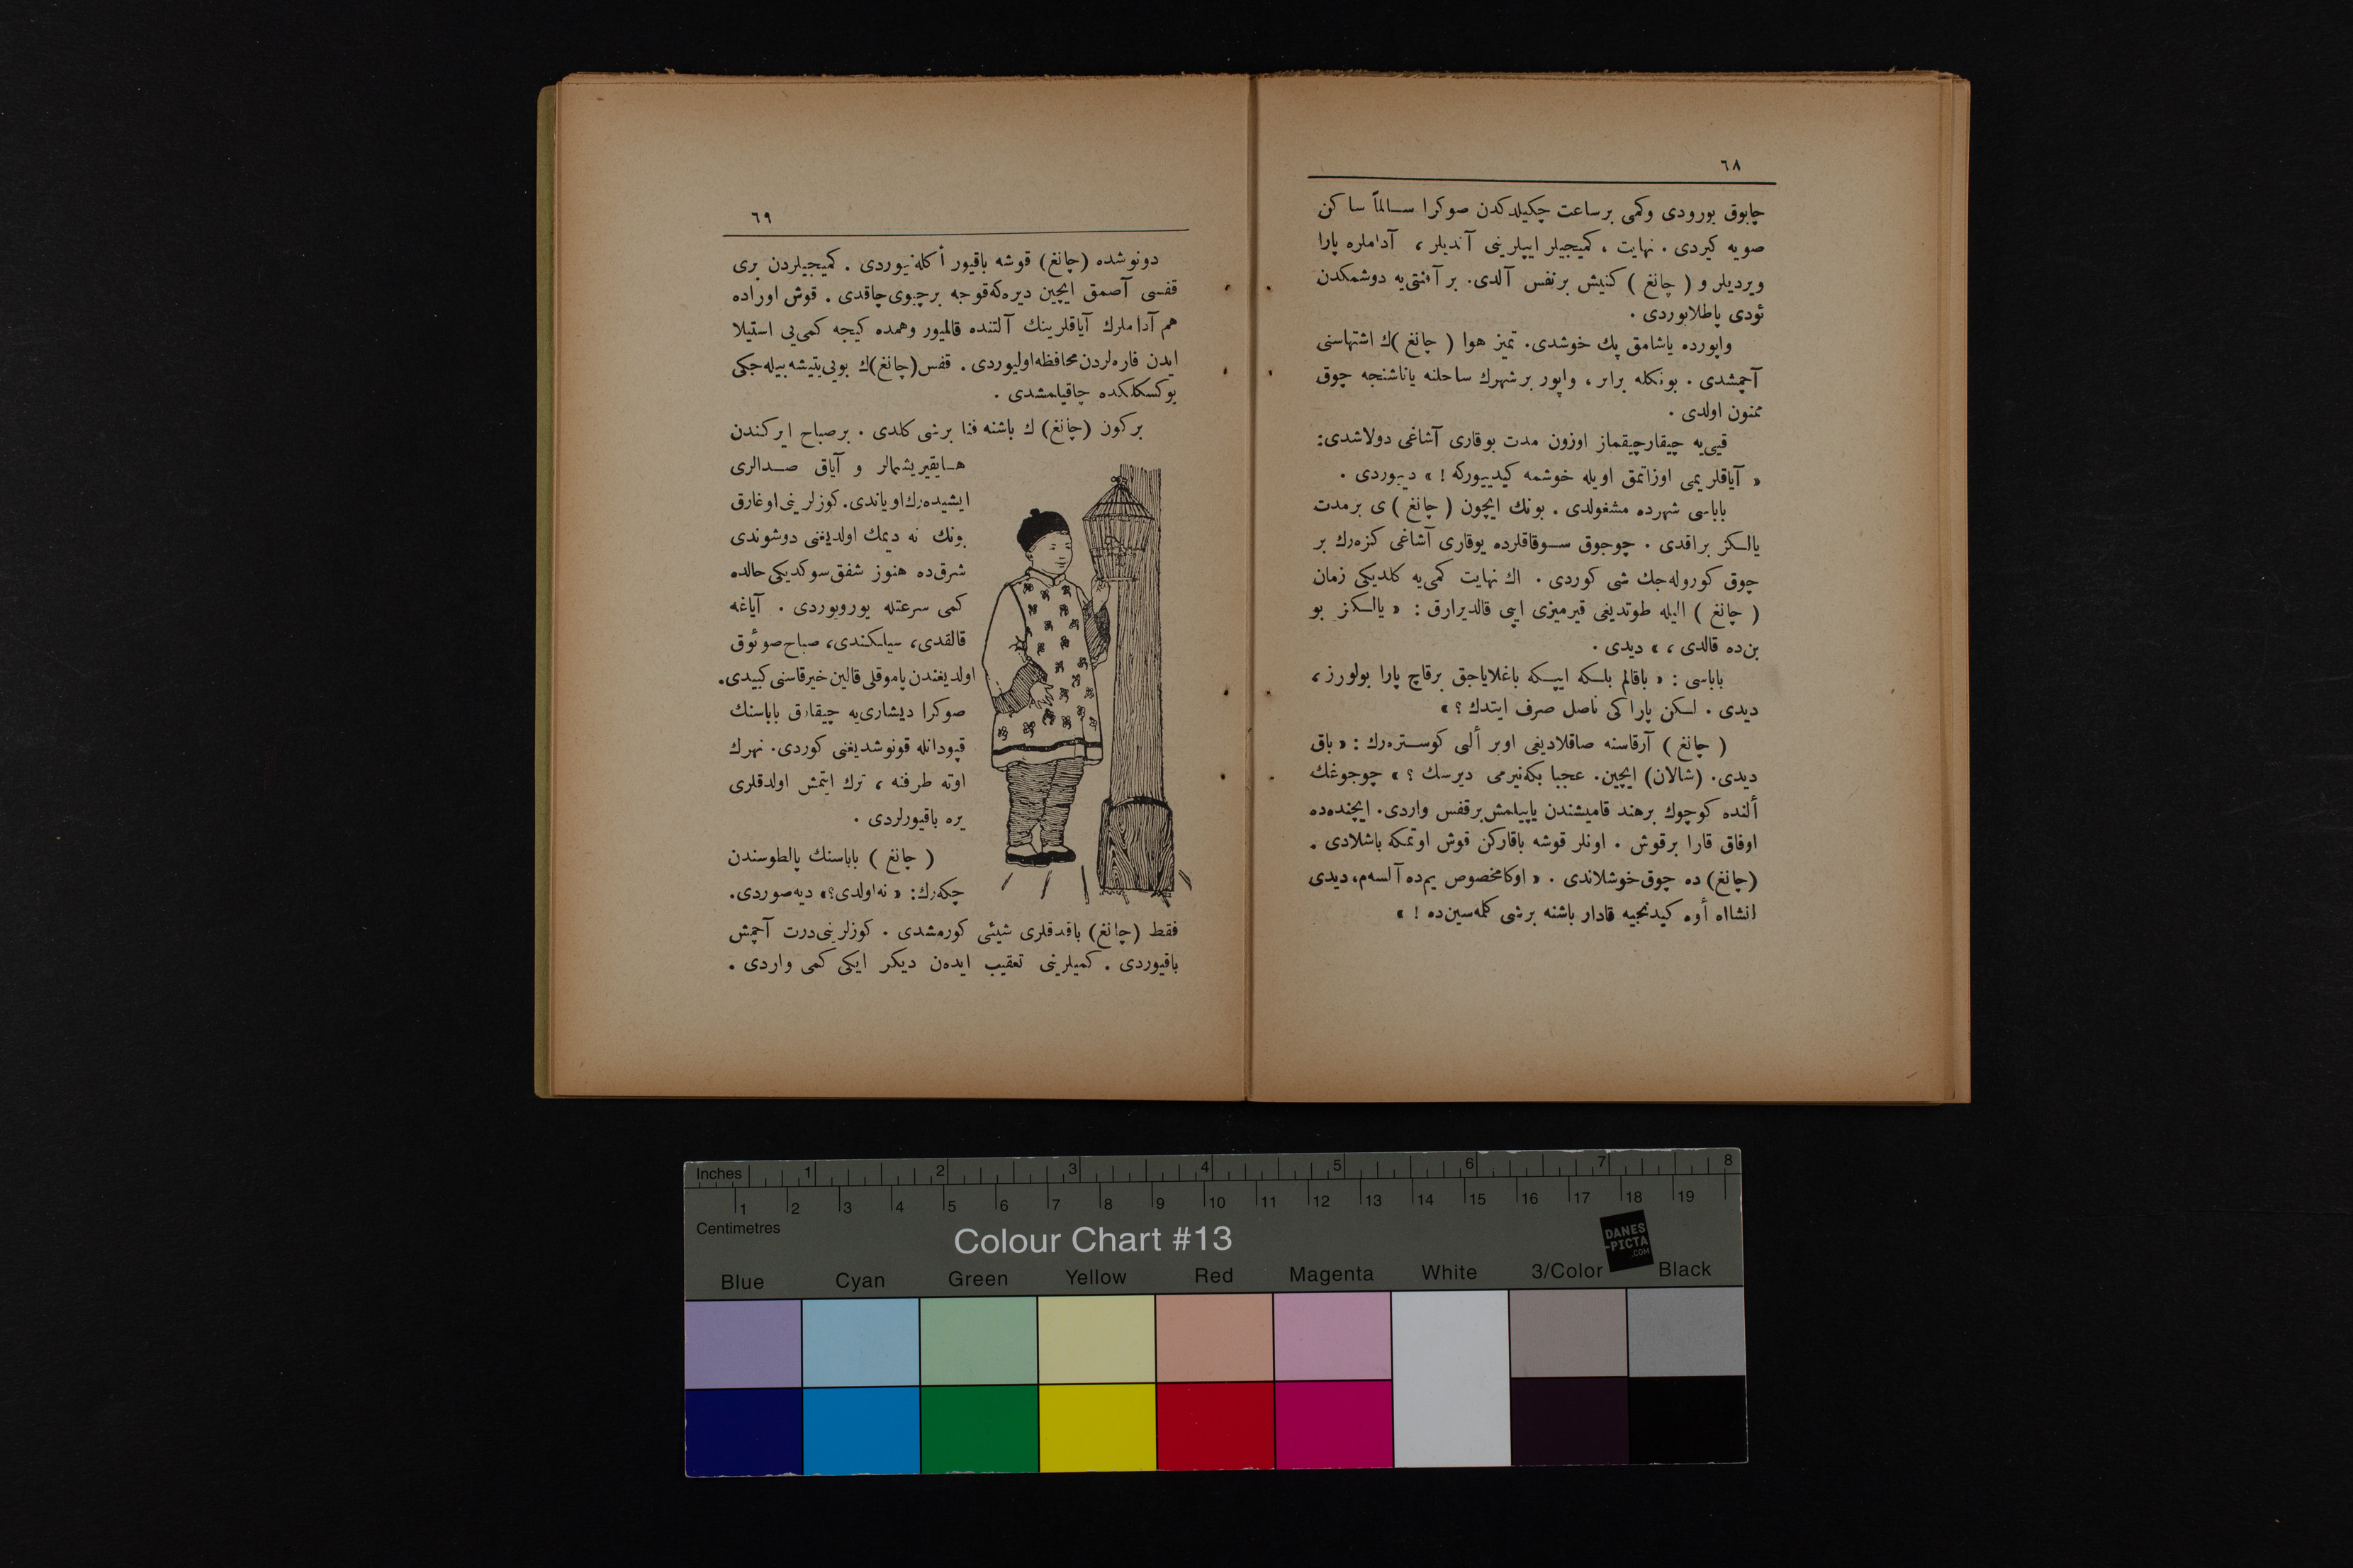 ٦٨
چابوق بورودی وكمی برساعت چكيلدكدن صوكرا ســالماً ساكن
صويه كيردی . نهايت ، كميجيلر ايپلرينی آنديلر ، آداملره پارا
ويرديلر و ( چانغ ) كنيش برنفس آلدی. بر آفنتی‌يه دوشمكدن
ئودی پاطلايوردی .
واپورده ياشامق پك خوشدی. تميز هوا ( چانغ )ك اشتهاسنی
آچمشدی . بونكله برابر ، واپور بر شهرك ساحلنه ياناشنجه چوق
ممنون اولدی .
قيی‌يه چيقارچيقماز اوزون مدت بوقاری آشاغی دولاشدی:
« آياقلريمی اوزاتمق اويله خوشمه كيدييوركه ! » ديبوردی .
باباسی شهرده مشغولدی . بونك ايچون ( چانغ ) ی برمدت
يالــكز براقدی . چوجوق ســوقاقلرده يوقاری آشاغی كزه‌رك بر
چوق كوروله‌جك شی كوردی . اك نهايت كمی‌يه كلديكی زمان
( چانغ ) اليله طوتديغی قيرميزی ايپی قالديرارق : « يالــكز بو
بن‌ده قالدی ، » ديدی .
باباسی : « باقالم بلــكه ايپــكه باغلاياجق برقاچ پارا بولورز ،
ديدی . لــكن پاراكی ناصل صرف ايتدك ؟ »
( چانغ ) آرقاسنه صاقلاديغی اوبر ألی كوســتره‌رك : « باق
ديدی. (شالان) ايچين. عجبا بكه‌نيرمی ديرسك ؟ » چوجوغك
ألنده كوچوك برهند قاميشندن ياپيلمش برقفس واردی. ايچنده‌ده
اوفاق قارا برقوش . اونلر قوشه باقاركن قوش اوتمكه باشلادی .
(چانغ) ده چوق خوشلاندی . « اوكا مخصوص يم‌ده آلسه‌م، ديدی
انشااه أوه كيدنجيه قادار باشنه برشی كلمه‌سين‌ده ! »
٦٩
دونوشده (چانغ) قوشه باقيور أكله‌نيوردی . كميجيلردن بری
قفسی آصمق ايچين ديره‌كه قوجه برچيوی چاقدی . قوش اوراده
هم آداملرك آياقلرينك آلتنده قالميور وهمده كيجه كمی‌يی استيلا
ايدن فاره‌لردن محافظه اوليوردی . قفس (چانغ)ك بويی يتيشه بيله‌جكی
يوكسكلكده چاقيلمشدی .
بركون (چانغ) ك باشنه فنا برشی كلدی . برصباح ايركندن
هــايقيريشمالر و آياق صــدالری
ايشيده‌رك اوياندی. كوزلرينی اوغارق
بونك نه ديمك اولديغنی دوشوندی
شرق‌ده هنوز شفق سوكديكی حالده
كمی سرعتله يورويوردی . آياغه
قالقدی، سيلكندی، صباح صوئوق
اولديغندن پاموقلی قالين خيرقاسنی كييدی.
صوكرا ديشاری‌يه چيقارق باباسنك
قپودانله قونوشديغنی كوردی. نهرك
اوته طرفنه ، ترك ايتمش اولدقلری
يره باقيورلردی .
( چانغ ) باباسنك پالطوسندن
چكه‌رك: « نه‌اولدی؟» ديه‌صوردی.
فقط (چانغ) باقدقلری شيئی كورمشدی . كوزلرينی درت آچمش
باقيوردی . كميلرينی تعقيب ايده‌ن ديكر ايكی كمی واردی .
Inches 1 2 3 4 5 6 7 8
1 2 3 4 5 6 7 8 9 10 11 12 13 14 15 16 17 18 19
Centimetres
Colour Chart #13
DANES
-PICTA
.COM
Blue Cyan Green Yellow Red Magenta White 3/Color Black